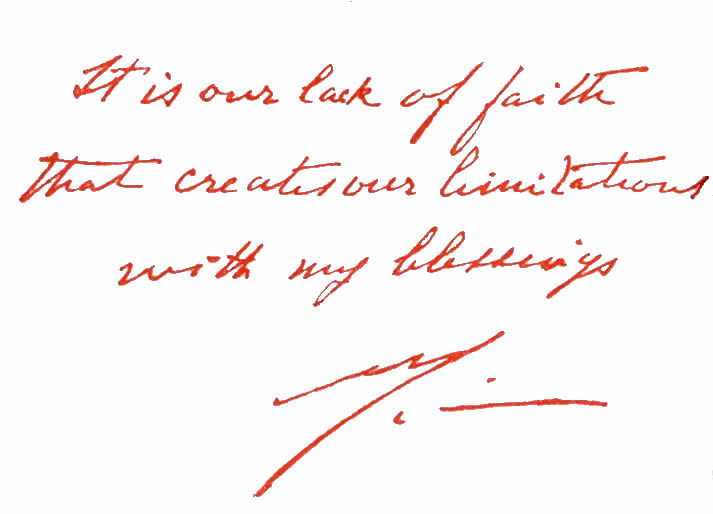 It is our lack of faith
that creates our limitations
with my blessings